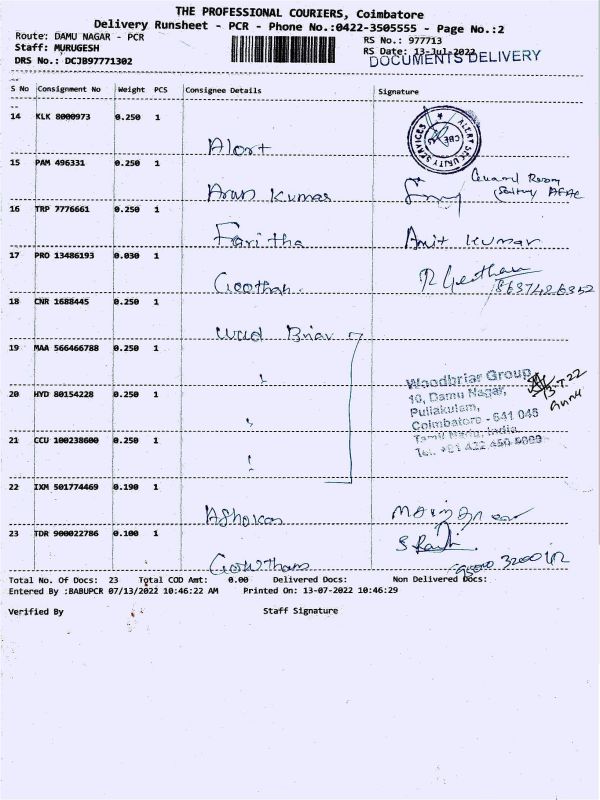 THE PROFESSIONAL COURIERS, Coimbatore
Delivery Runsheet - PCR - Phone No.:0422-3505555 - Page No.:2
Route: DAMU NAGAR - PCR
RS No.: 977713
Staff: MURUGESH
RS Date: 13-Jul-2022
DRS No.: DCJB97771302
DOCUMENTS DELIVERY
S No Consignment No Weight PCS Consignee Details Signature
14 KLK 8000973 0.250 1 Alert
ALERT SECURITY SERVICES CBE
15 PAM 496331 0.250 1 Arun Kumar
Guard Room
16 TRP 7776661 0.250 1 Faritha Amit Kumar
17 PRO 13486193 0.030 1 Geethan. R Geetha
8637426352
18 CNR 1688445 0.250 1 Wud Briar
19 MAA 566466788 0.250 1 "
20 HYD 80154228 0.250 1 "
21 CCU 100238600 0.250 1 "
Woodbriar Group
10, Damu Nagar,
Puliakulam,
Coimbatore - 641 045
Tamil Nadu, India.
Tel. +91 422 450 9009
13.7.22
22 IXM 501774469 0.190 1 Ashokan
23 TDR 900022786 0.100 1 Gowtham
Total No. Of Docs: 23 Total COD Amt: 0.00 Delivered Docs: Non Delivered Docs:
Entered By :BABUPCR 07/13/2022 10:46:22 AM Printed On: 13-07-2022 10:46:29
Verified By Staff Signature